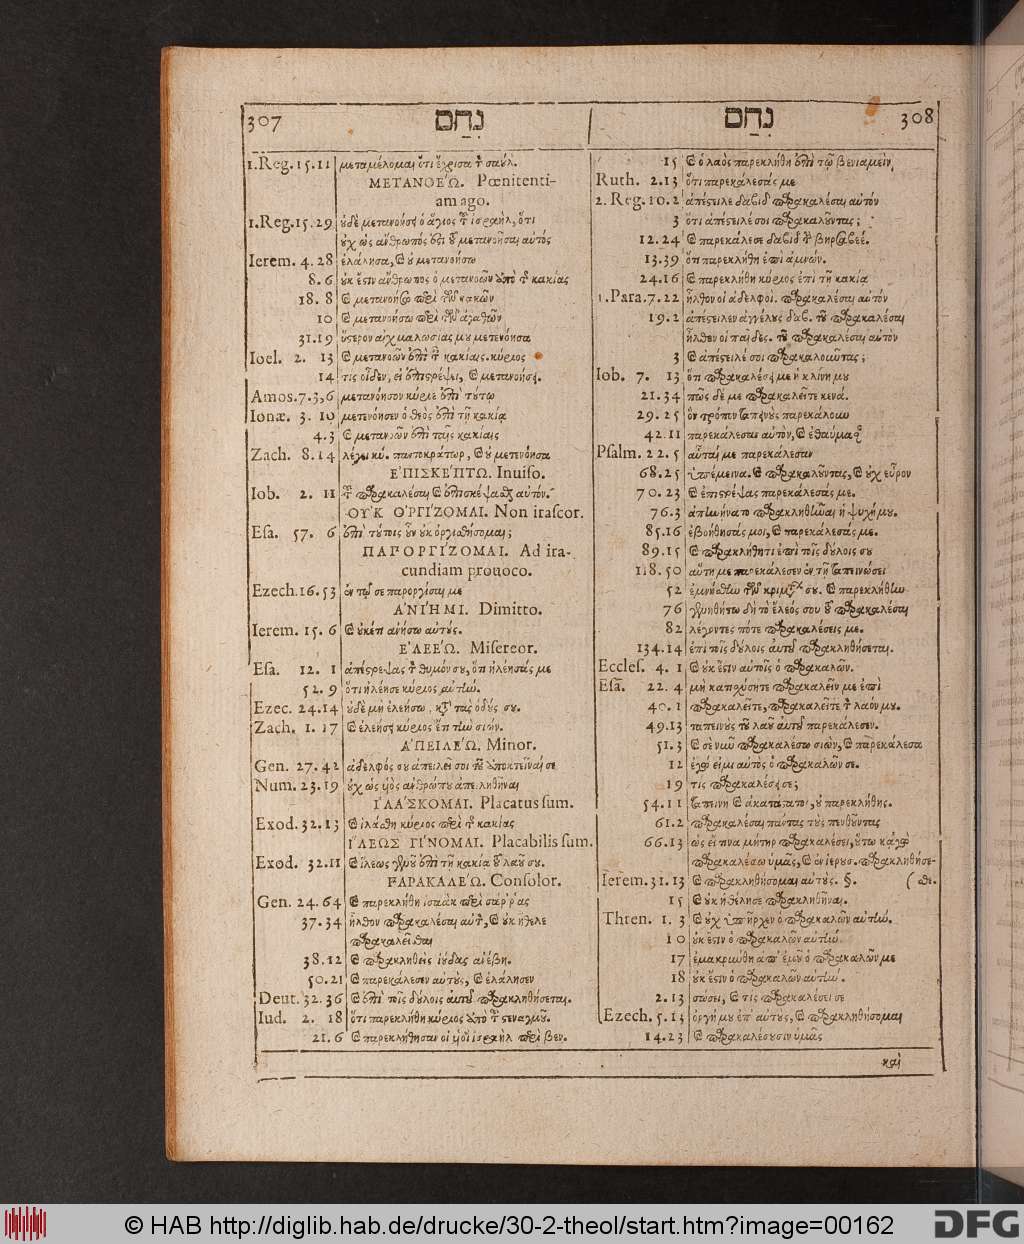 307 נִחַם נִחַם 308
1.Reg.15.11 μεταμέλομαι ὅτι ἔχρισα τ̀ σαούλ.
ΜΕΤΑΝΟΕ΄Ω. Pœnitenti-
am ago.
1.Reg.15.29 οὐδὲ μετανοήσει ὁ ἅγιος τ̃ ἰσραὴλ, ὅτι
οὐχ ὡς ἄνθρωπός ἐστι τοῦ μετανοῆσαι αὐτός
Ierem. 4.28 ἐλάλησα, καὶ οὐ μετανοήσω
8.6 οὐκ ἔστιν ἄνθρωπος ὁ μετανοῶν ὑπὸ τ̃ κακίας
18.8 καὶ μετανοήσω περὶ τῶν κακῶν
10 καὶ μετανοήσω περὶ τῶν ἀγαθῶν
31.19 ὕστερον αἰχμαλωσίας μου μετενόησα
Ioel. 2. 13 καὶ μετανοῶν ἐπὶ τ̃ κακίαις. κύριος
14 τίς οἶδεν, εἰ ἐπιστρέψει, καὶ μετανοήσει.
Amos.7.3,6 μετανόησον κύριε ἐπὶ τούτῳ
Ionæ. 3. 10 μετενόησεν ὁ θεὸς ἐπὶ τῇ κακίᾳ
4.3 καὶ μετανοῶν ἐπὶ ταῖς κακίαις
Zach. 8.14 λέγει κύ. παντοκράτωρ, καὶ οὐ μετενόησα
Ε᾿ΠΙΣΚΕ΄ΠΤΩ. Inuiso.
Iob. 2. 11 τ̃ παρακαλέσαι καὶ ἐπισκέψασθαι αὐτόν.
ΟΥ᾿Κ Ο᾿ΡΓΙ΄ΖΟΜΑΙ. Non irascor.
Esa. 57. 6 ἐπὶ τούτοις οὖν οὐκ ὀργισθήσομαι;
ΠΑΡΟΡΓΙ΄ΖΟΜΑΙ. Ad ira-
cundiam prouoco.
Ezech.16.53 ἐν τῷ σε παροργίσαι με
Α᾿ΝΙ΄ΗΜΙ. Dimitto.
Ierem. 15.6 καὶ οὐκέτι ἀνήσω αὐτούς.
Ε᾿ΛΕΕ΄Ω. Misereor.
Esa. 12. 1 ἀπέστρεψας τ̀ θυμόν σου, ὅτι ἠλέησάς με
52. 9 ὅτι ἠλέησε κύριος αὐτήν.
Ezec. 24.14 οὐδὲ μὴ ἐλεήσω, κατὰ τὰς ὁδούς σου.
Zach. 1. 17 καὶ ἐλεήσει κύριος ἔτι τὴν σιών.
Α᾿ΠΕΙΛΕ΄Ω. Minor.
Gen. 27.42 ἀδελφός σου ἀπειλεῖ σοι τοῦ ὑποκτεῖναί σε
Num. 23.19 οὐχ ὡς υἱὸς ἀνθρώπου ἀπειληθῆναι
Ι῾ΛΑ΄ΣΚΟΜΑΙ. Placatus sum.
Exod. 32.13 καὶ ἱλάσθη κύριος περὶ τ̃ κακίας
Ι῞ΛΕΩΣ ΓΙ΄ΝΟΜΑΙ. Placabilis sum.
Exod. 32.11 καὶ ἵλεως γενοῦ ἐπὶ τῇ κακίᾳ τοῦ λαοῦ σου.
ΠΑΡΑΚΑΛΕ΄Ω. Consolor.
Gen. 24.64 καὶ παρεκλήθη ἰσαὰκ περὶ σάῤῥας
37.34 ἦλθον παρακαλέσαι αὐτ̀, καὶ οὐκ ἤθελε
παρακαλεῖσθαι
38.12 καὶ παρακληθεὶς ἰούδας ἀνέβη.
50.21 καὶ παρεκάλεσεν αὐτούς, καὶ ἐλάλησεν
Deut. 32.36 καὶ ἐπὶ τοῖς δούλοις αὐτοῦ παρακληθήσεται.
Iud. 2. 18 ὅτι παρεκλήθη κύριος ὑπὸ τ̃ στεναγμοῦ.
21.6 καὶ παρεκλήθησαν οἱ υἱοὶ ἰσραὴλ περὶ βεν.
15 καὶ ὁ λαὸς παρεκλήθη ἐπὶ τῷ βενιαμείν,
Ruth. 2.13 ὅτι παρεκάλεσάς με
2. Reg.10.2 ἀπέστειλε δαβὶδ παρακαλέσαι αὐτόν
3 ὅτι ἀπέστειλέ σοι παρακαλοῦντας;
12.24 καὶ παρεκάλεσε δαβὶδ τ̀ βηρσαβεέ.
13.39 ὅτι παρεκλήθη ἐπὶ ἀμνών.
24.16 καὶ παρεκλήθη κύριος ἐπὶ τῇ κακίᾳ
1.Para.7.22 ἦλθον οἱ ἀδελφοί. παρακαλέσαι αὐτόν
19.2 ἀπέστειλεν ἀγγέλους δαβ. τοῦ παρακαλέσαι
ἦλθον οἱ παῖδες. τοῦ παρακαλέσαι αὐτόν
3 καὶ ἀπέστειλέ σοι παρακαλοῦντας;
Iob. 7. 13 ὅτι παρακαλέσει με ἡ κλίνη μου
21.34 πῶς δέ με παρακαλεῖτε κενά.
29.25 ὃν τρόπον παθεινοὺς παρεκάλουν
42.11 παρεκάλεσαν αὐτὸν, καὶ ἐθαύμασαν
Psalm. 22.5 αὗταί με παρεκάλεσαν
68.25 ὑπέμεινα. καὶ παρακαλοῦντας, καὶ οὐχ εὗρον
70.23 καὶ ἐπιστρέψας παρεκάλεσάς με.
76.3 ἀπηνήνατο παρακληθῆναι ἡ ψυχή μου.
85.16 ἐβοήθησάς μοι, καὶ παρεκάλεσάς με.
89.15 καὶ παρακλήθητι ἐπὶ τοῖς δούλοις σου
118.50 αὕτη με παρεκάλεσεν ἐν τῇ ταπεινώσει
52 ἐμνήσθην τῶν κριμάτων σου. καὶ παρεκλήθην
76 γενηθήτω δὴ τὸ ἔλεός σου τοῦ παρακαλέσαι
82 λέγοντες πότε παρακαλέσεις με.
134.14 ἐπὶ τοῖς δούλοις αὐτοῦ παρακληθήσεται.
Eccles. 4. 1 καὶ οὐκ ἔστιν αὐτοῖς ὁ παρακαλῶν.
Esa. 22. 4 μὴ κατισχύσητε παρακαλεῖν με ἐπὶ
40.1 παρακαλεῖτε, παρακαλεῖτε τ̀ λαόν μου.
49.13 ταπεινοὺς τοῦ λαοῦ αὐτοῦ παρεκάλεσεν.
51.3 καὶ σὲ νῦν παρακαλέσω σιὼν, καὶ παρεκάλεσα
12 ἐγώ εἰμι αὐτὸς ὁ παρακαλῶν σε.
19 τίς παρακαλέσει σε;
54.11 ταπεινὴ καὶ ἀκατάστατος, οὐ παρεκλήθης.
61.2 παρακαλέσαι πάντας τοὺς πενθοῦντας
66.13 ὡς εἴ τινα μήτηρ παρακαλέσει, οὕτω κἀγὼ
παρακαλέσω ὑμᾶς, καὶ ἐν ἱερουσ. παρακληθήσε-
Ierem.31.13 καὶ παρακληθήσομαι αὐτούς. §. (σθε.
15 καὶ οὐκ ἤθέλησε παρακληθῆναι.
Thren. 1. 3 καὶ οὐχ ὑπῆρχεν ὁ παρακαλῶν αὐτήν.
10 οὐκ ἔστιν ὁ παρακαλῶν αὐτήν.
17 ἐμακρύνθη ἀπ᾿ ἐμοῦ ὁ παρακαλῶν με
18 οὐκ ἔστιν ὁ παρακαλῶν αὐτήν.
2.13 σώσει, καὶ τίς παρακαλέσει σε
Ezech. 5.13 ὀργή μου ἐπ᾿ αὐτούς, καὶ παρακληθήσομαι
14.23 καὶ παρακαλέσουσιν ὑμᾶς
καὶ
© HAB http://diglib.hab.de/drucke/30-2-theol/start.htm?image=00162
DFG